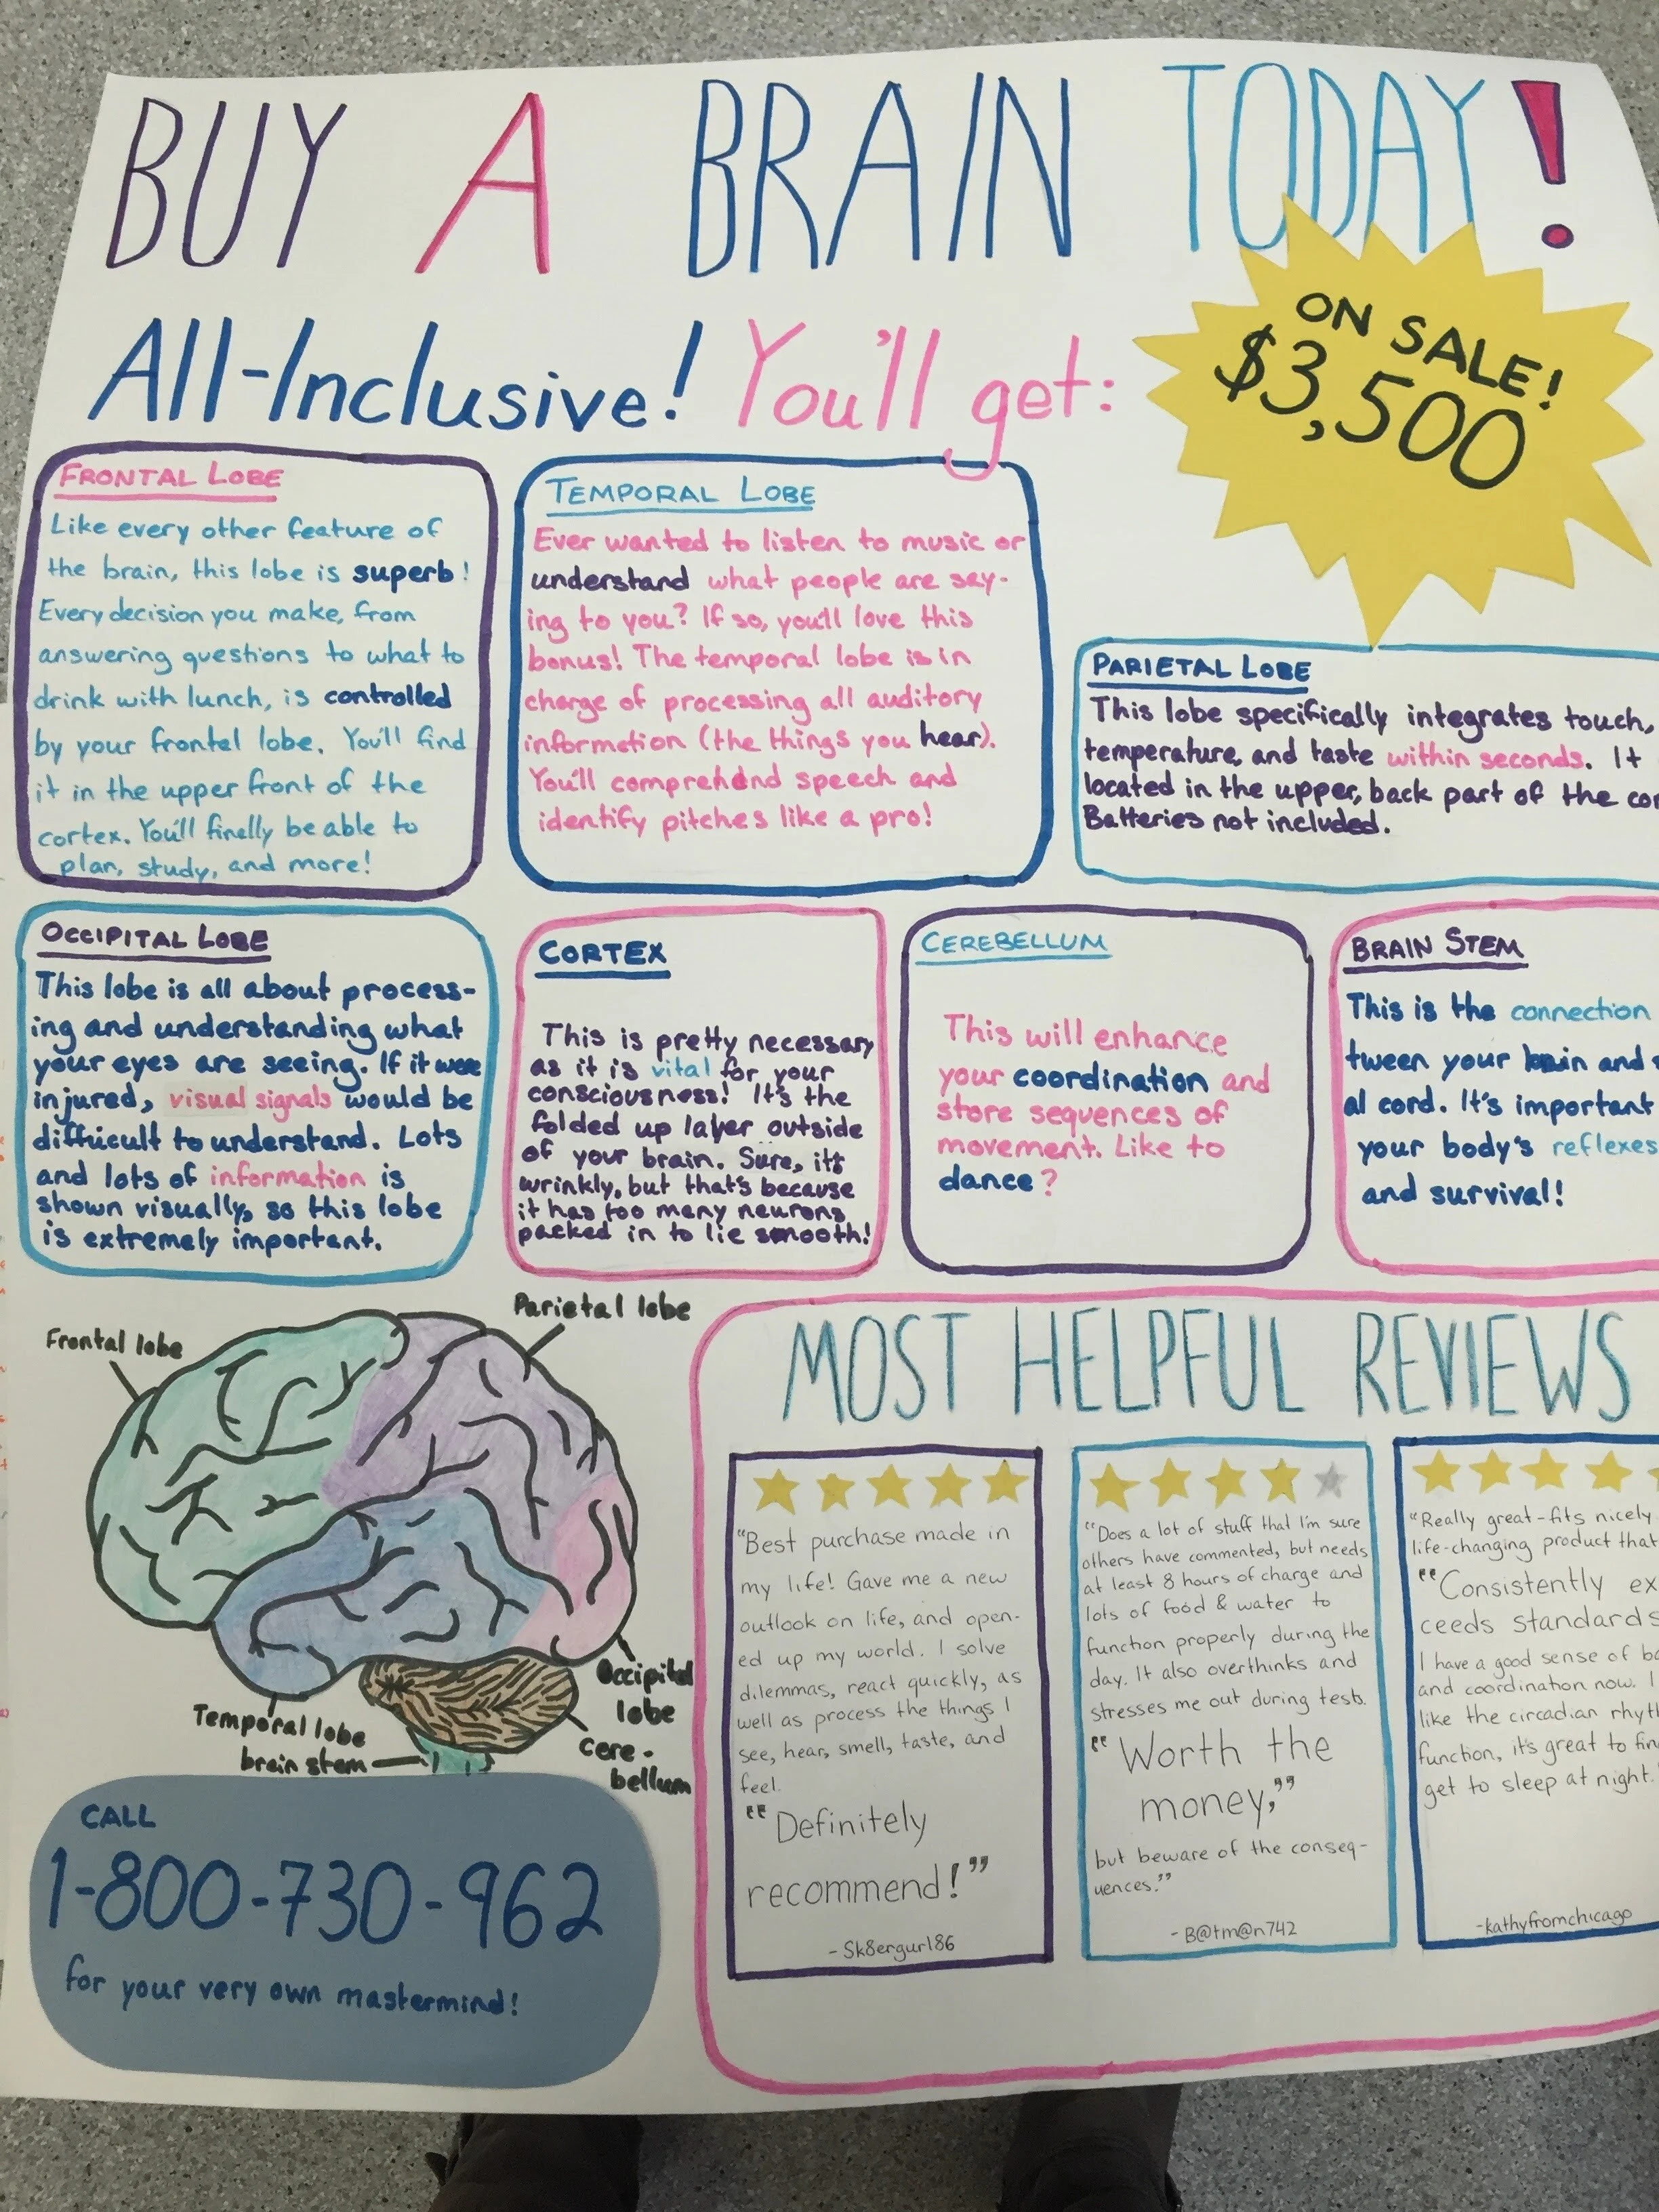 BUY A BRAIN TODAY!
All-Inclusive! You'll get:
ON SALE!
$3,500
FRONTAL LOBE
Like every other feature of
the brain, this lobe is superb!
Every decision you make, from
answering questions to what to
drink with lunch, is controlled
by your frontal lobe. You'll find
it in the upper front of the
cortex. You'll finally be able to
plan, study, and more!
TEMPORAL LOBE
Ever wanted to listen to music or
understand what people are say-
ing to you? If so, you'll love this
bonus! The temporal lobe is in
charge of processing all auditory
information (the things you hear).
You'll comprehend speech and
identify pitches like a pro!
PARIETAL LOBE
This lobe specifically integrates touch,
temperature, and taste within seconds. It
located in the upper, back part of the cor
Batteries not included.
OCCIPITAL LOBE
This lobe is all about process-
ing and understanding what
your eyes are seeing. If it were
injured, visual signals would be
difficult to understand. Lots
and lots of information is
shown visually, so this lobe
is extremely important.
CORTEX
This is pretty necessary
as it is vital for your
consciousness! It's the
folded up layer outside
of your brain. Sure, it's
wrinkly, but that's because
it has too many neurons
packed in to lie smooth!
CEREBELLUM
This will enhance
your coordination and
store sequences of
movement. Like to
dance?
BRAIN STEM
This is the connection
tween your brain and
al cord. It's important
your body's reflexes
and survival!
Frontal lobe
Parietal lobe
Occipital
lobe
Temporal lobe
brain stem
cere-
bellum
CALL
1-800-730-962
for your very own mastermind!
MOST HELPFUL REVIEWS
"Best purchase made in
my life! Gave me a new
outlook on life, and open-
ed up my world. I solve
dilemmas, react quickly, as
well as process the things I
see, hear, smell, taste, and
feel.
"Definitely
recommend!"
-Sk8ergurl86
"Does a lot of stuff that I'm sure
others have commented, but needs
at least 8 hours of charge and
lots of food & water to
function properly during the
day. It also overthinks and
stresses me out during tests.
"Worth the
money,"
but beware of the conseq-
uences."
-B@tm@n742
"Really great-fits nicely
life-changing product that
"Consistently ex
ceeds standards
I have a good sense of ba
and coordination now. I
like the circadian rhyt
function, it's great to fin
get to sleep at night.
-kathyfromchicago